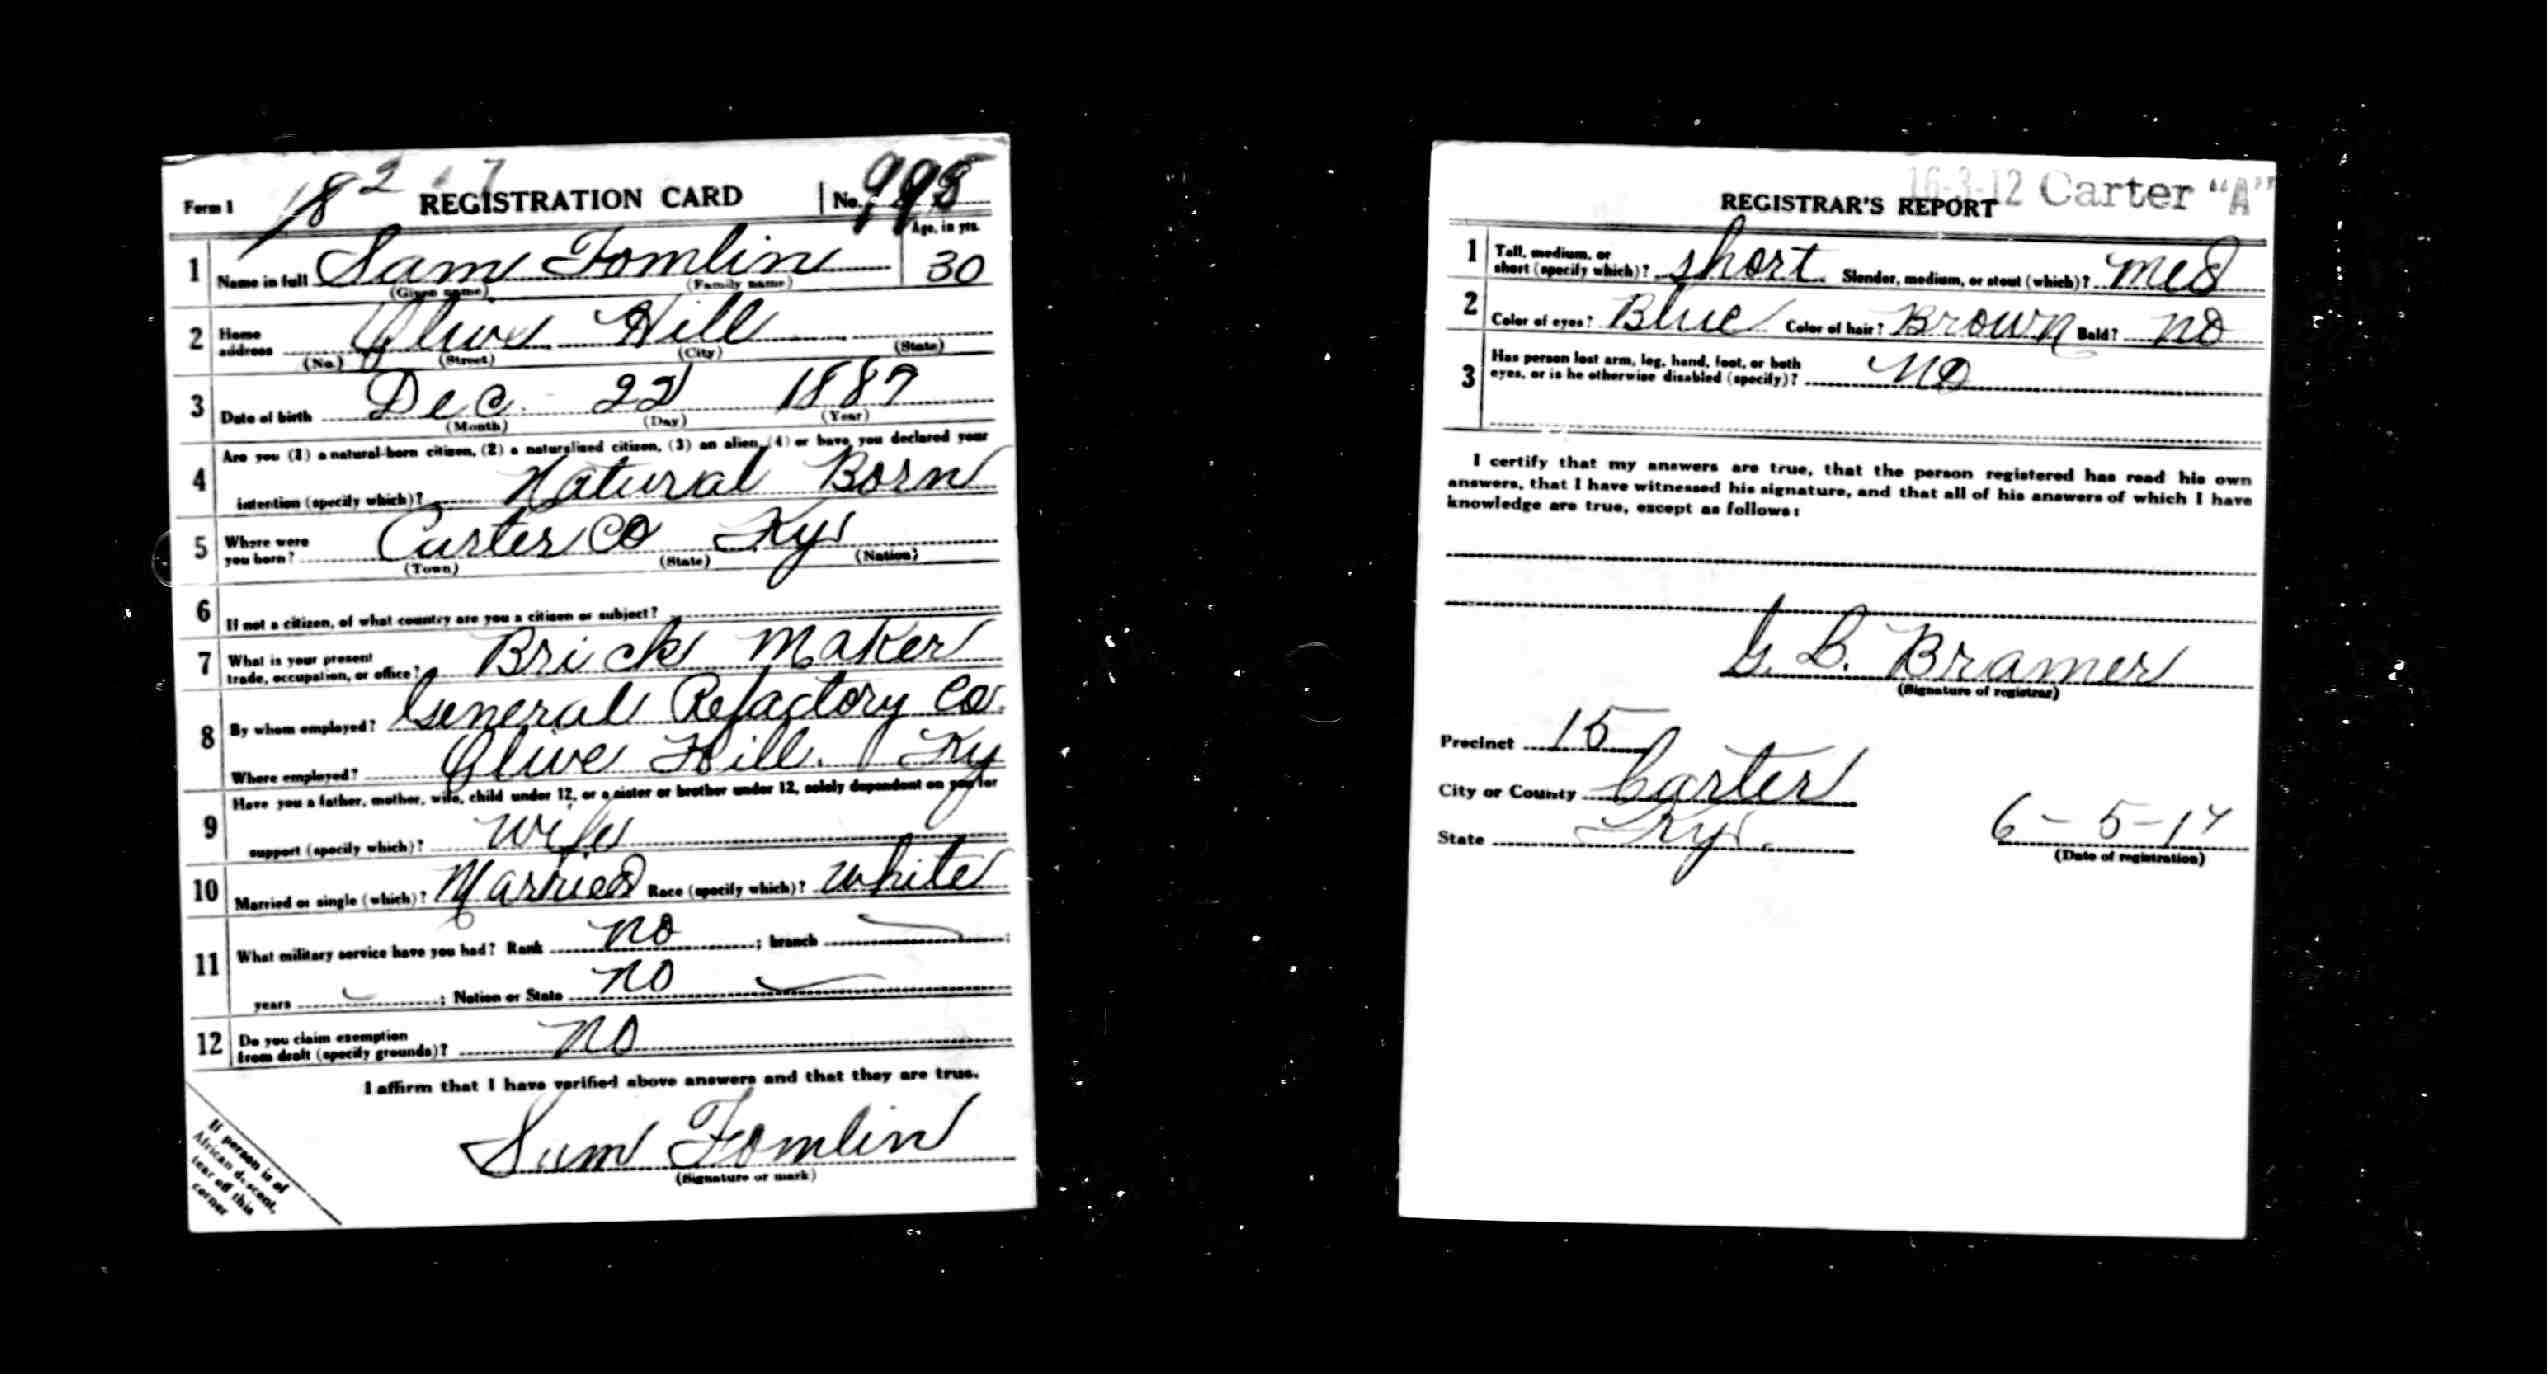 Form 1
REGISTRATION CARD
No.
Age, in yrs.
1 Name in full Sam Tomlin 30
(Given name) (Family name)
2 Home address Olive Hill
(No.) (Street) (City) (State)
3 Date of birth Dec. 22 1887
(Month) (Day) (Year)
4 Are you (1) a natural-born citizen, (2) a naturalized citizen, (3) an alien, (4) or have you declared your
intention (specify which)? Natural Born
5 Where were you born? Carter Co Ky
(Town) (State) (Nation)
6 If not a citizen, of what country are you a citizen or subject?
7 What is your present trade, occupation, or office? Brick Maker
8 By whom employed? General Refactory Co.
Where employed? Olive Hill. Ky
9 Have you a father, mother, wife, child under 12, or a sister or brother under 12, solely dependent on you for
support (specify which)? wife
10 Married or single (which)? Married Race (specify which)? white
11 What military service have you had? Rank no ; branch ;
years ; Nation or State no
12 Do you claim exemption from draft (specify grounds)? no
I affirm that I have verified above answers and that they are true.
Sam Tomlin
(Signature or mark)
If person is of
African descent,
tear off this
corner
16-3-12 Carter "A"
REGISTRAR'S REPORT
1 Tall, medium, or short (specify which)? short Slender, medium, or stout (which)? med
2 Color of eyes? Blue Color of hair? Brown Bald? no
3 Has person lost arm, leg, hand, foot, or both
eyes, or is he otherwise disabled (specify)? no
I certify that my answers are true, that the person registered has read his own
answers, that I have witnessed his signature, and that all of his answers of which I have
knowledge are true, except as follows:
G. B. Bramer
(Signature of registrar)
Precinct 15
City or County Carter
State Ky.
6-5-17
(Date of registration)